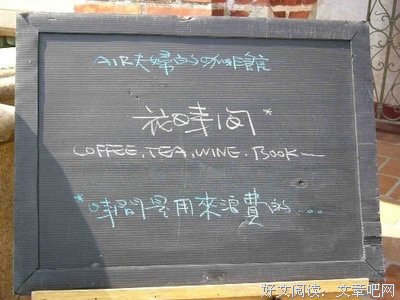 AIR夫婦的咖啡館
花時间*
COFFEE.TEA.WINE.BOOK—
*時間是用來浪費的...
好文阅读: 文章吧网